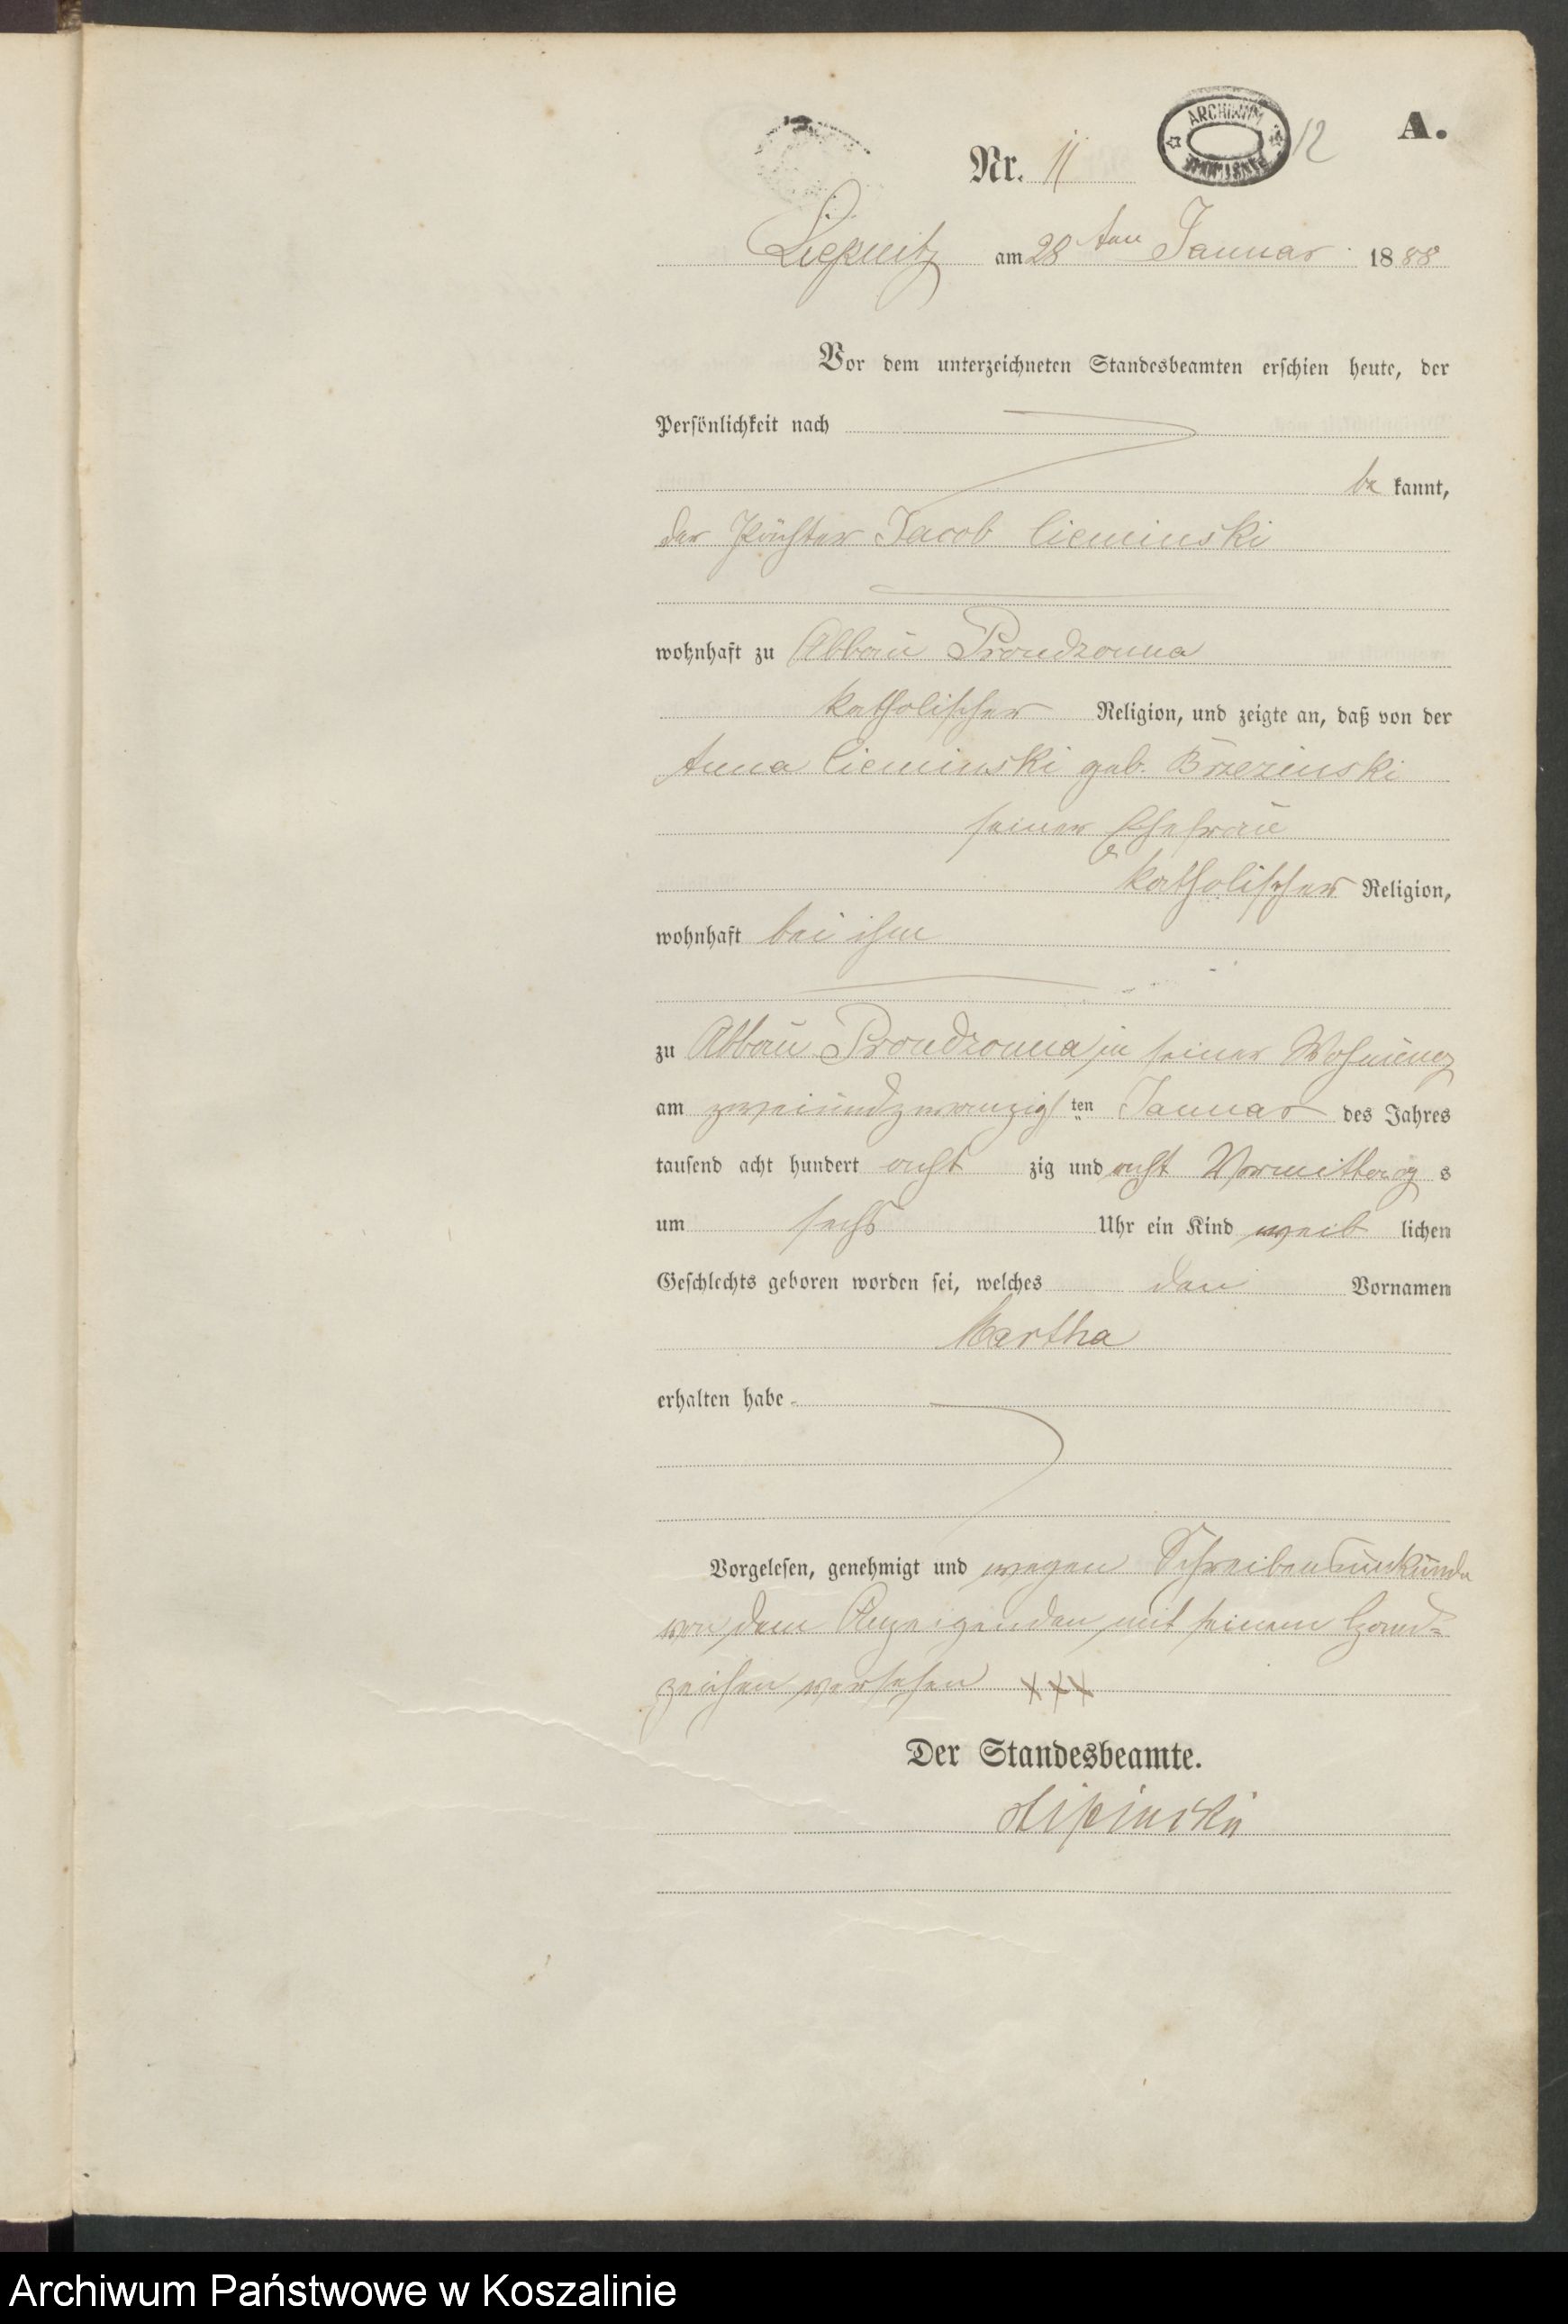 ARCHIWUM
12
A.
Nr. 11
Liepnitz am 28ten Januar 1888
Vor dem unterzeichneten Standesbeamten erschien heute, der
Persönlichkeit nach
be kannt,
der Pächter Jacob Cieminski
wohnhaft zu Abbau Prondzonna
katholischer Religion, und zeigte an, daß von der
Anna Cieminski geb. Brzezinski
seiner Ehefrau
katholischer Religion,
wohnhaft bei ihm
zu Abbau Prondzonna in seiner Wohnung
am zweiundzwanzigsten Januar des Jahres
tausend acht hundert acht zig und acht Vormittag s
um sechs Uhr ein Kind weib lichen
Geschlechts geboren worden sei, welches den Vornamen
Martha
erhalten habe
Vorgelesen, genehmigt und wegen Schreibensunkunde
von dem Anzeigenden mit seinem Hand=
zeichen versehen XXX
Der Standesbeamte.
Lipinski
Archiwum Państwowe w Koszalinie